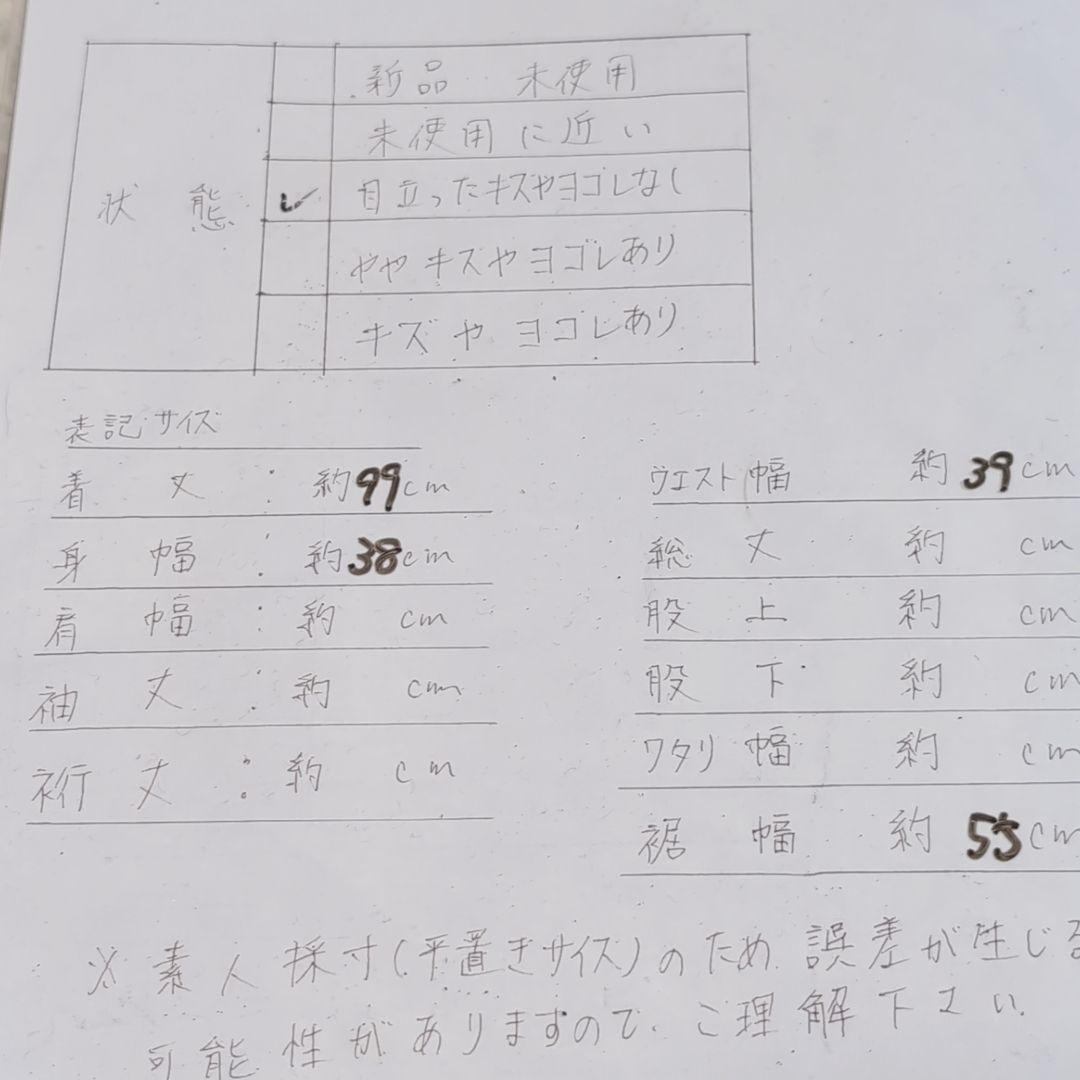 状態
新品 未使用
未使用に近い
✓ 目立ったキズやヨゴレなし
ややキズやヨゴレあり
キズやヨゴレあり
表記サイズ
着丈:約99cm
身幅:約38cm
肩幅:約 cm
袖丈:約 cm
裄丈:約 cm
ウエスト幅 約39cm
総丈 約 cm
股上 約 cm
股下 約 cm
ワタリ幅 約 cm
裾幅 約55cm
※素人採寸(平置きサイズ)のため誤差が生じる
可能性がありますので、ご理解下さい。